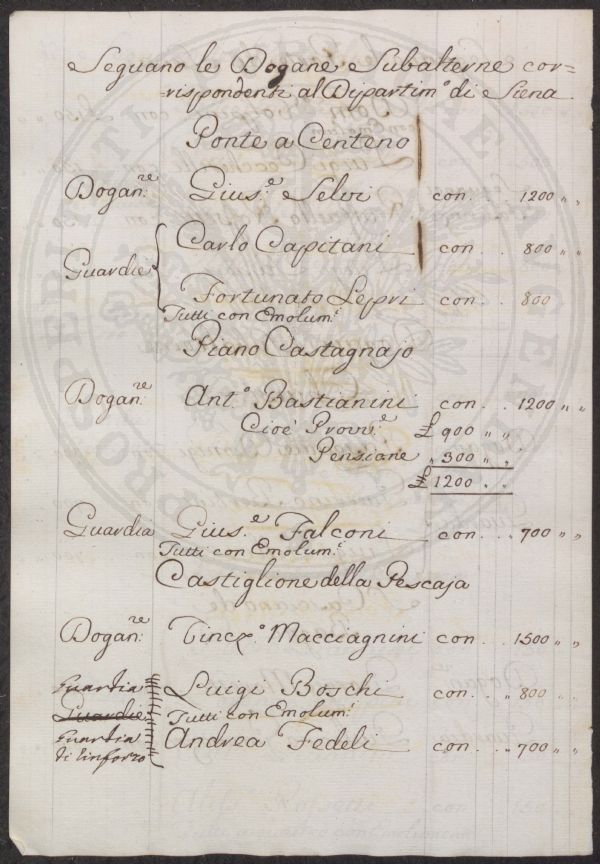 Seguano le Dogane Subalterne cor=
rispondenti al Dipartim.º di Siena
Ponte a Centeno
Dogan.re Gius.e Selvi con . . 1200 „ „
Guardie Carlo Capitani con . . 800 „ „
Fortunato Lepri con . . 800
Tutti con Emolum.ti
Piano Castagnajo
Dogan.re Ant.º Bastianini con . . 1200 „ „
Cioè Provv.e £ 900 „ „
Pensione „ 300 „ „
£ 1200 „ „
Guardia Gius.e Falconi con . . 700 „ „
Tutti con Emolum.ti
Castiglione della Pescaja
Dogan.re Macciagnini con . . 1500 „ „
Guardia Luigi Boschi con . . „ 800 „
Guardie Tutti con Emolum.ti
Guardia Andrea Fedeli con . . „ 700 „ „
di rinforzo